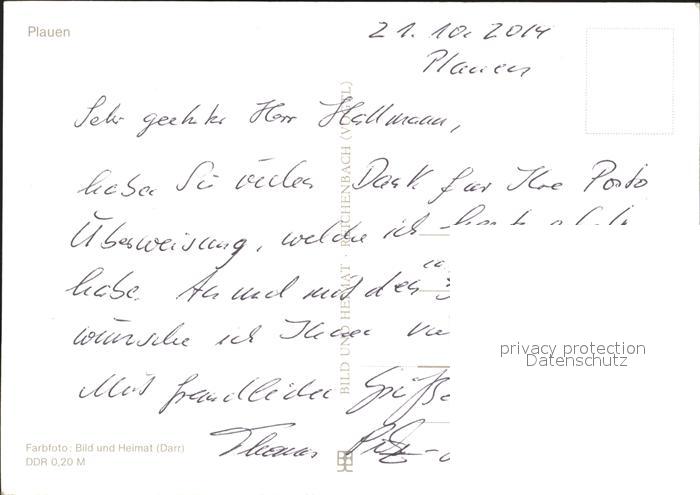 Plauen
21.10.2014
Plauen
Sehr geehrter Herr Hallmann,
haben Sie vielen Dank für Ihre Porto
Überweisung, welche ich
habe. An und mit den
wünsche ich Ihnen
Mit freundlichen Grüße
Thomas
BILD UND HEIMAT · REICHENBACH (VOGTL)
privacy protection
Datenschutz
Farbfoto: Bild und Heimat (Darr)
DDR 0,20 M